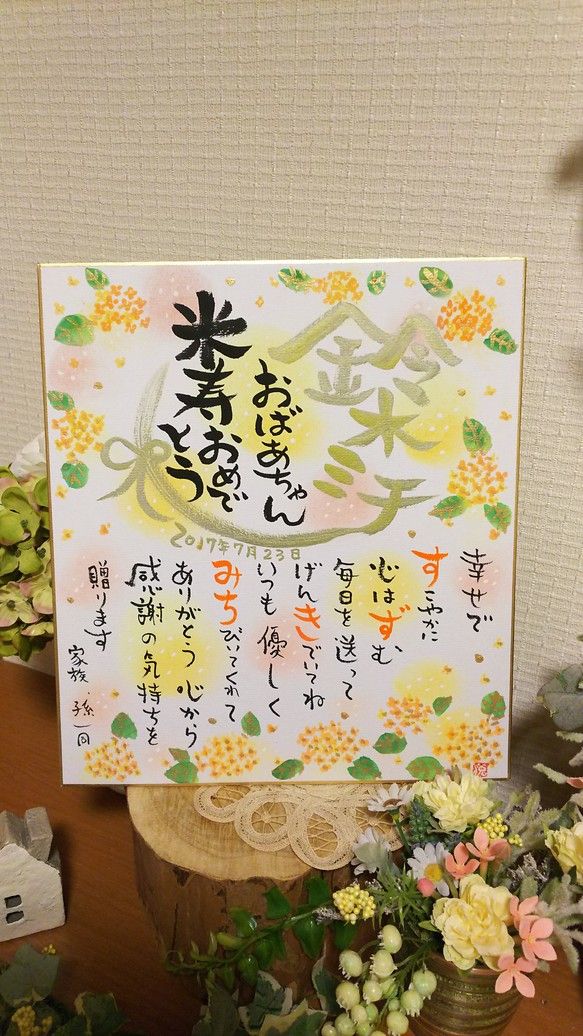 鈴木ミチ
おばあちゃん
米寿おめでとう
2017年7月23日
幸せで
すこやかに
心はずむ
毎日を送って
げんきでいてね
いつも優しく
みちびいてくれて
ありがとう 心から
感謝の気持ちを
贈ります
家族・孫一同